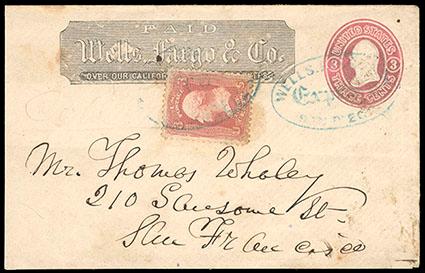 PAID
Wells, Fargo & Co.
OVER OUR CALIFOR
UNITED STATES
3 3
THREE CENTS
WELLS,
SAN DIEGO
Mr. Thomas Whaley
210 Sansome St.
San Francisco